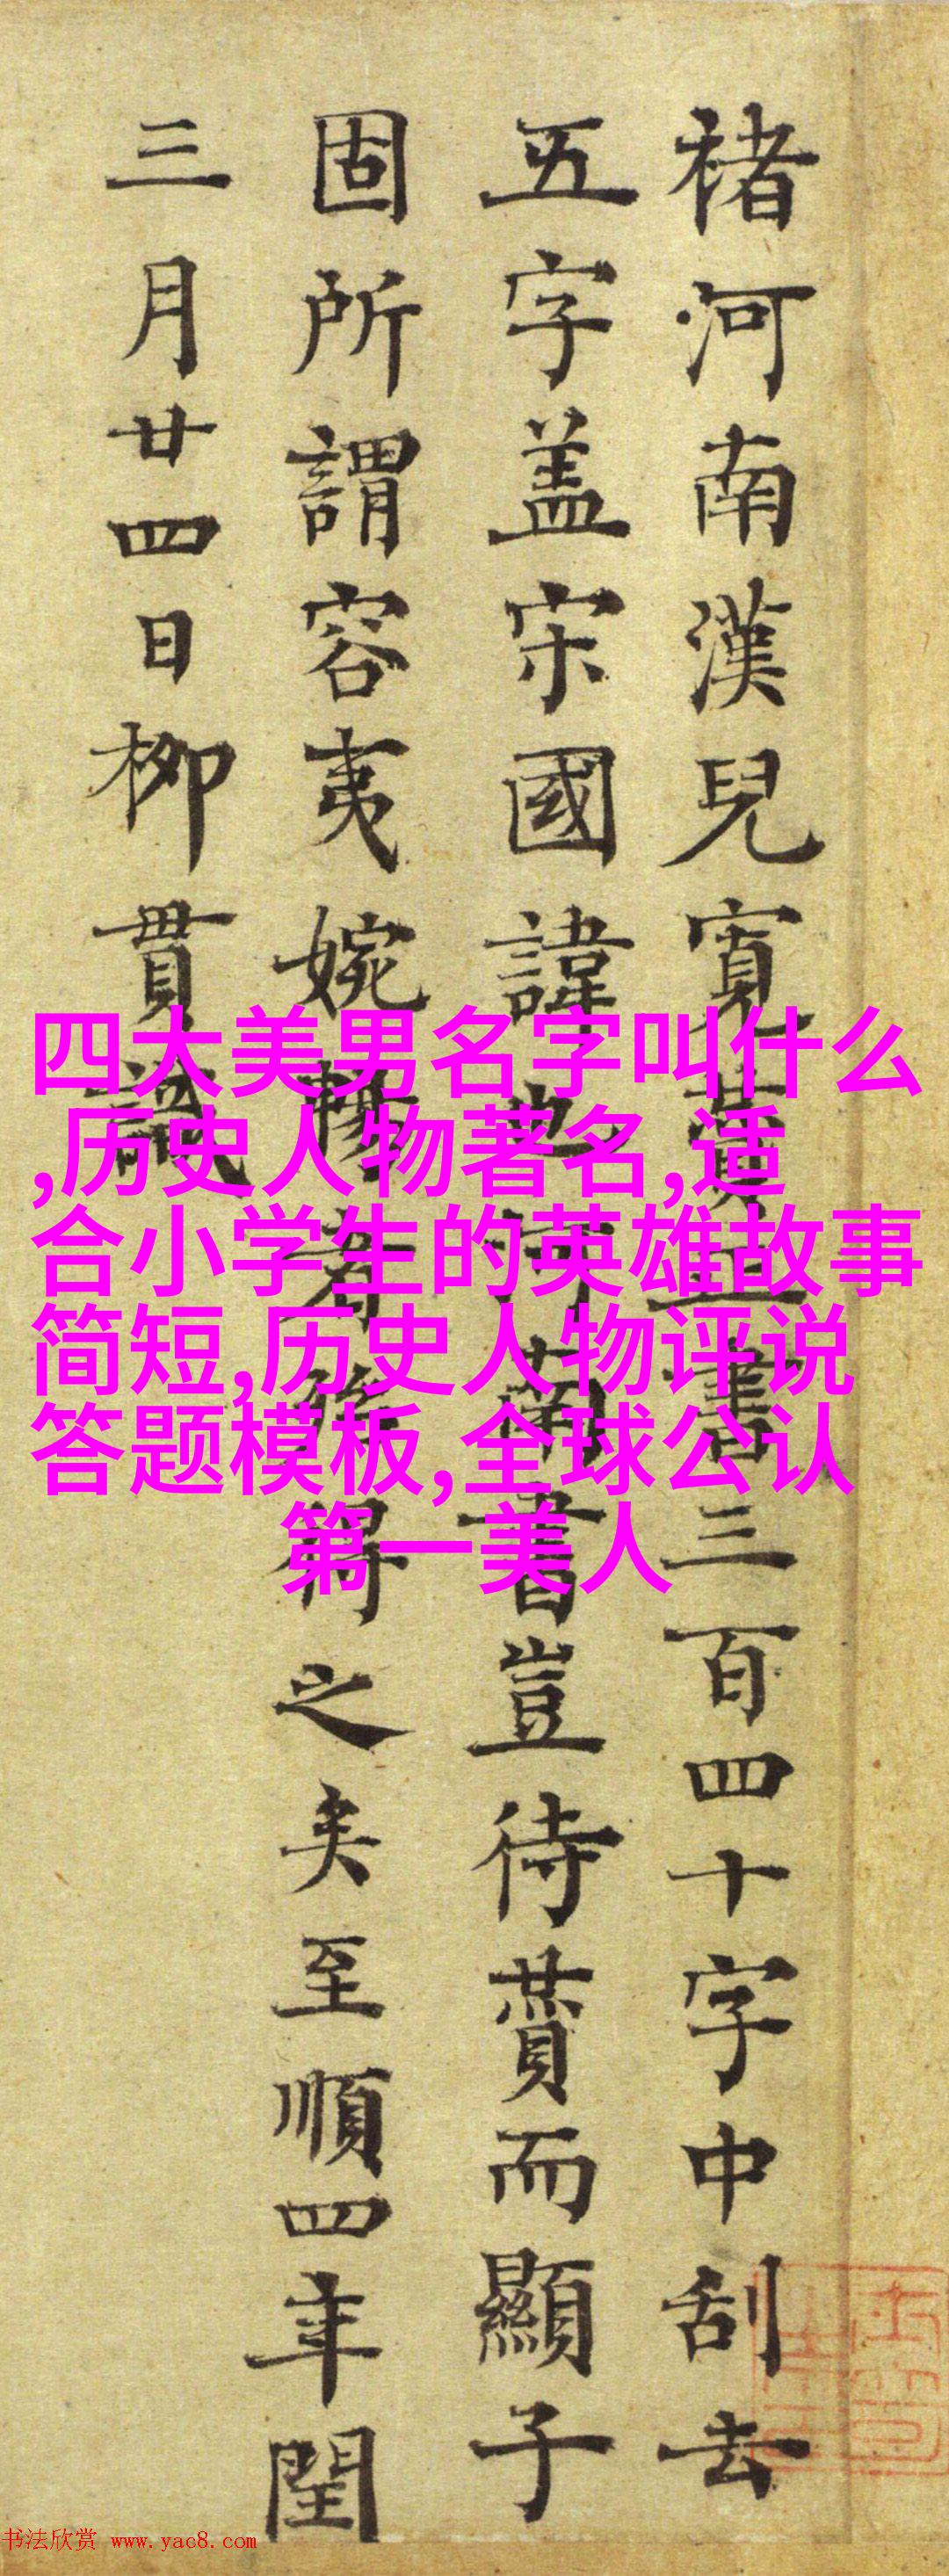 褚河南漢兒寬賛正書三百四十字中刮去
五字盖宋國諱也河南書豈待賛而顯子
固所謂容夷婉暢者得之矣至順四年閏
三月廿四日柳貫識
四大美男名字叫什么
,历史人物著名,适
合小学生的英雄故事
简短,历史人物评说
答题模板,全球公认
第一美人
书法欣赏 www.yac8.com